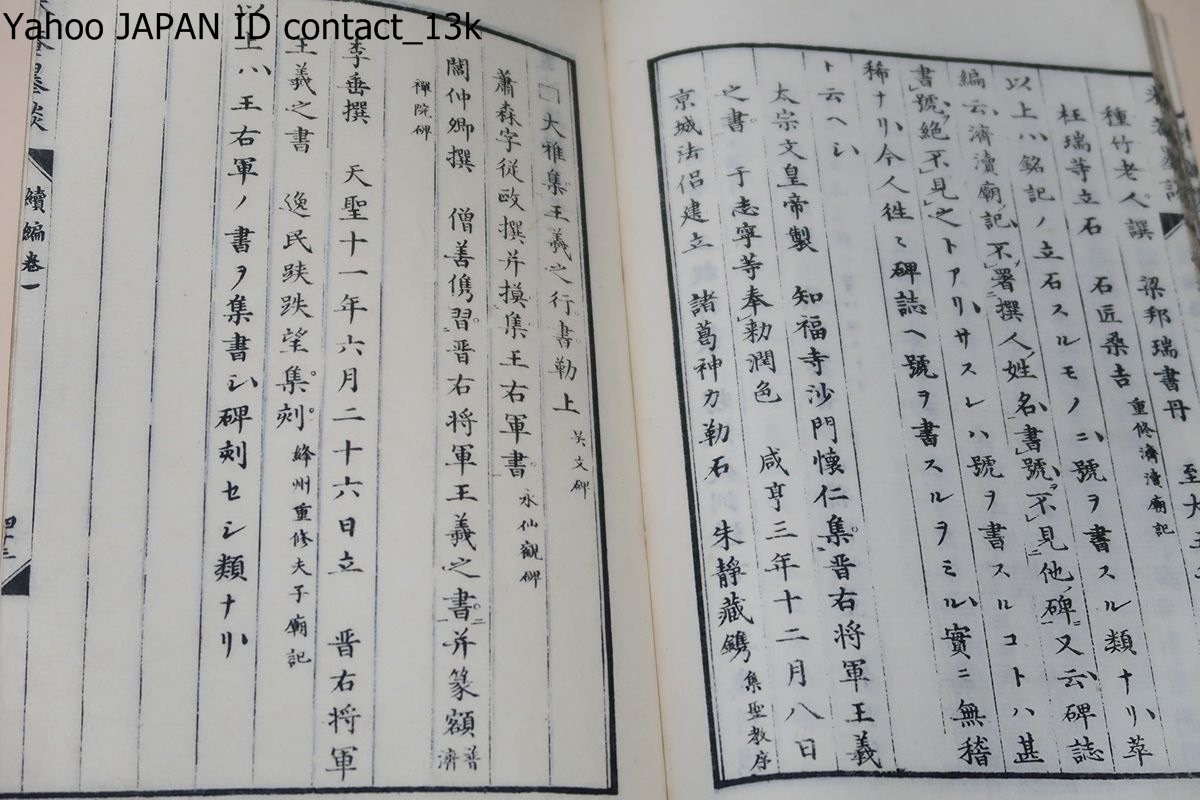 種竹老人譔　梁邦瑞書丹　至大五
枉瑞等立石　石匠桑吉　重修濟瀆廟記
以上ハ銘記ノ立石スルモノニ號ヲ書スル類ナリ萃
編云濟瀆廟記不署撰人姓名書號不見他碑又云碑誌
書號絶不見之トアリサスレハ號ヲ書スルコトハ甚
稀ナリ今人徃〻碑誌ヘ號ヲ書スルヲミル實ニ無稽
ト云ヘシ
太宗文皇帝製　知福寺沙門懷仁集晋右将軍王羲
之書　于志寧等奉勅潤色　咸亨三年十二月八日
京城法侶建立　諸葛神力勒石　朱靜藏鐫　集聖教序
□大雅集王羲之行書勒上　吴文碑
蕭森字従政撰并摸集王右軍書　永仙觀碑
闊仲卿撰　僧善儁習晋右将軍王羲之書并篆額　普濟
禪院碑
李垂撰　天聖十一年六月二十六日立　晋右将軍
王羲之書　逸民䟫趺望集刻　絳州重修夫子廟記
以上ハ王右軍ノ書ヲ集書シ碑刻セシ類ナリ
續編卷一
四十三
Yahoo JAPAN ID contact_13k